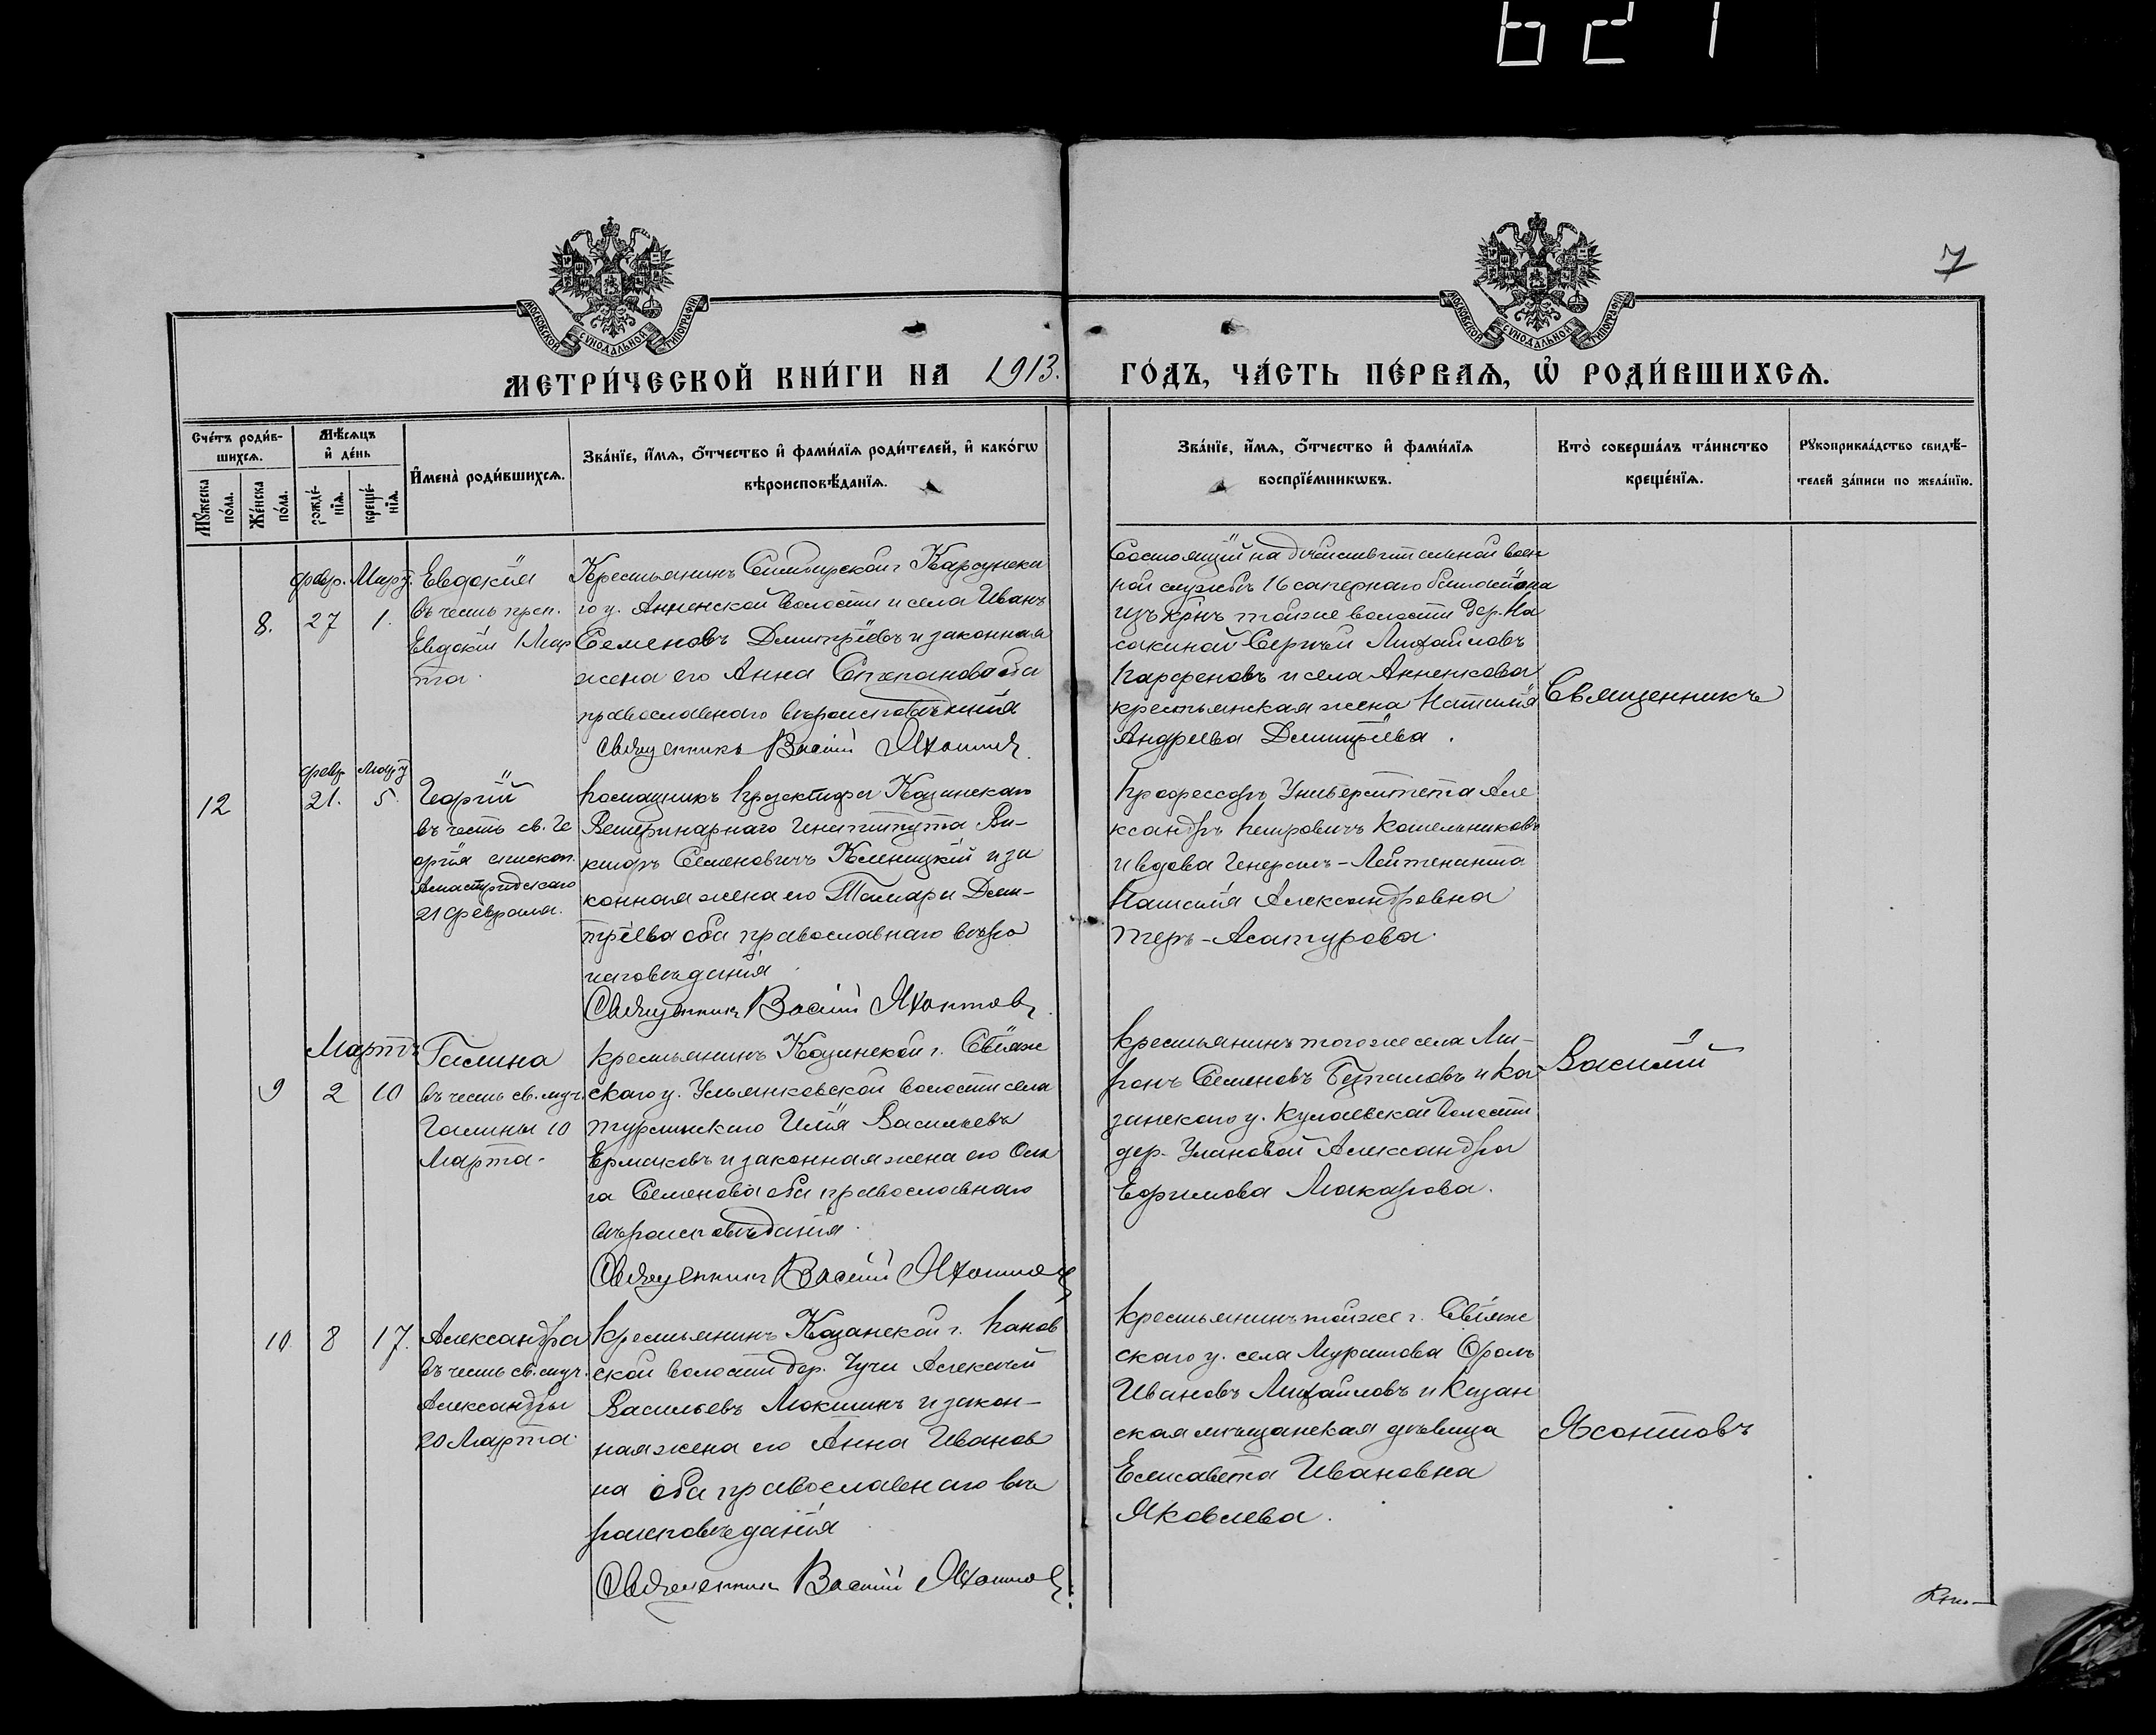 621
7
МОСКОВСКОЙ СѴНОДАЛЬНОЙ ТИПОГРАФІИ
МОСКОВСКОЙ СѴНОДАЛЬНОЙ ТИПОГРАФІИ
МЕТРИ́ЧЕСКОЙ КНИ́ГИ НА 1913. ГО́ДЪ, ЧА́СТЬ ПЕ́РВАѦ, Ѡ҆ РОДИ́ВШИХСѦ.
Сче́тъ роди́в-
шихсѧ.
Мꙋ́жеска
по́ла.
Же́нска
по́ла.
Мѣ́сѧцъ
и҆ де́нь
рожде́-
нїѧ.
креще́-
нїѧ.
И҆мена̀ роди́вшихсѧ.
Зва́нїе, и҆́мѧ, ѻ҆́тчество и҆ фами́лїѧ роди́телей, и҆ како́гѡ
вѣроисповѣ́данїѧ.
Зва́нїе, и҆́мѧ, ѻ҆́тчество и҆ фами́лїѧ
воспрїе́мникѡвъ.
Кто̀ соверша́лъ та́инство
креще́нїѧ.
Рꙋкоприкла́дство свидѣ́-
телей за́писи по жела́нїю.
8.
февр. 27
Март. 1.
Евдокія
въ честь преп.
Евдокіи 1 Мар
та.
Крестьянинъ Симбирской г. Карсунска
го у. Анненской волости и села Иванъ
Семеновъ Димитріевъ и законная
жена его Анна Степанова оба
православнаго вѣроисповѣданія
Священникъ Василій Яхонтовъ.
Состоящій на дѣйствительной воен
ной службѣ 16 сапернаго баталіона
изъ кр‑нъ той же волости дер. На
сакиной Сергѣй Михайловъ
Парфеновъ и села Анненкова
крестьянская жена Наталія
Андреева Димитріева.
Священникъ
12
февр. 21.
Март. 5.
Георгій
въ честь св. Ге
оргія епископ.
Амастридскаго
21 февраля.
Помощникъ Прозектора Казанскаго
Ветеринарнаго Института Ви-
кторъ Семеновичъ Кленицкій и за
конная жена его Тамара Дми-
тріева оба православнаго вѣро
исповѣданія.
Священникъ Василій Яхонтовъ.
Профессоръ Университета Але
ксандръ Петровичъ Котельниковъ
и вдова Генералъ-Лейтенанта
Наталія Александровна
Теръ-Асатурова.
9
Мартъ
2
10
Галина
въ честь св. муч.
Галины 10
Марта.
Крестьянинъ Казанской г. Свіяж
скаго у. Ульянковской волости села
Илія Васильевъ
Ермаковъ и законная жена его Оль
га Семенова оба православнаго
вѣроисповѣданія.
Священникъ Василій Яхонтовъ
Крестьянинъ того же села Ми-
ронъ Семеновъ и Ка
занскаго у. Кулаевской волости
дер. Улановой Александра
Ефимова Макарова.
Василій
10
8
17.
Александра
въ честь св. муч.
Александры
20 Марта.
Крестьянинъ Казанской г. Панов
ской волости дер. Чучи Алексѣй
Васильевъ Мокшинъ и закон-
ная жена его Анна Иванов
на оба православнаго вѣ
роисповѣданія.
Священникъ Василій Яхонтовъ.
Крестьянинъ той же г. Свіяж
скаго у. села Муратова Фролъ
Ивановъ Михайловъ и Казан
ская мѣщанская дѣвица
Елисавета Ивановна
Яковлева.
Яхонтовъ